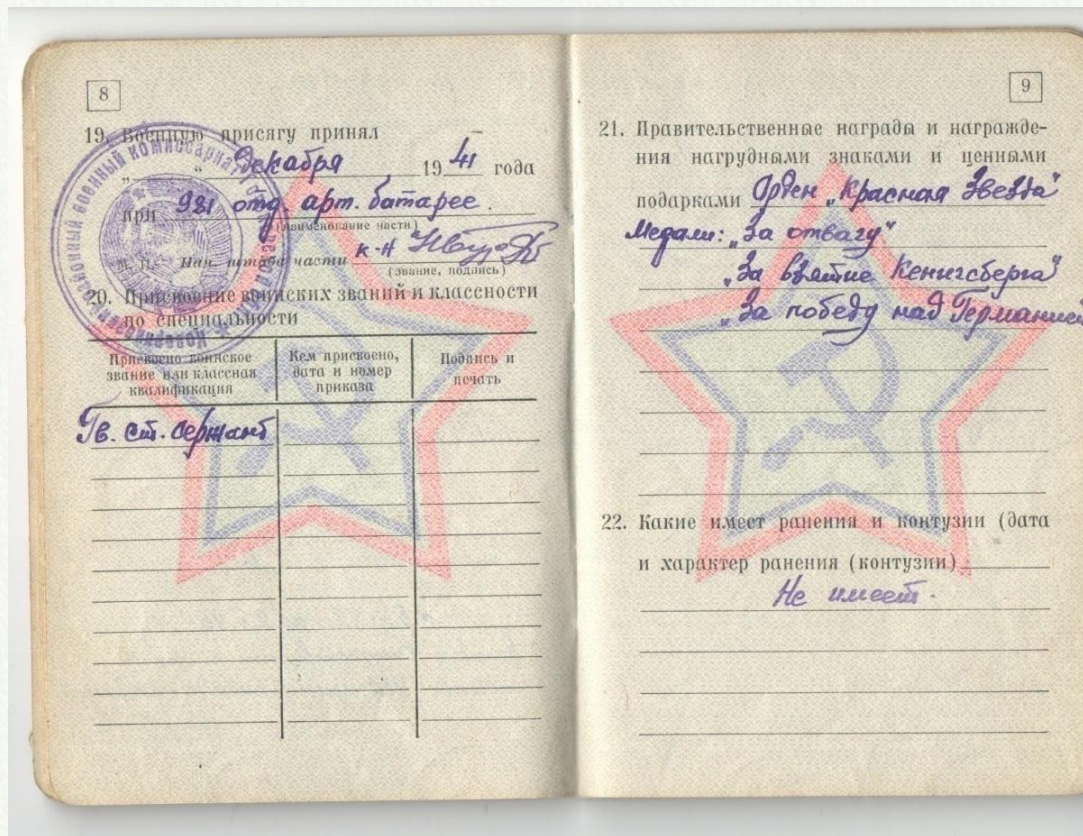 8
19. Военную присягу принял
„ “ Декабря 1941 года
при 921 отд. арт. батарее.
(наименование части)
М. П. Нач. штаба части к-н
(звание, подпись)
20. Присвоение воинских званий и классности
по специальности
Присвоено воинское
звание или классная
квалификация
Кем присвоено,
дата и номер
приказа
Подпись и
печать
Гв. ст. сержант
9
21. Правительственные награды и награжде-
ния нагрудными знаками и ценными
подарками Орден „Красная Звезда“
Медали: „За отвагу“
„За взятие Кенигсберга“
„За победу над Германией
22. Какие имеет ранения и контузии (дата
и характер ранения (контузии)
Не имеет.